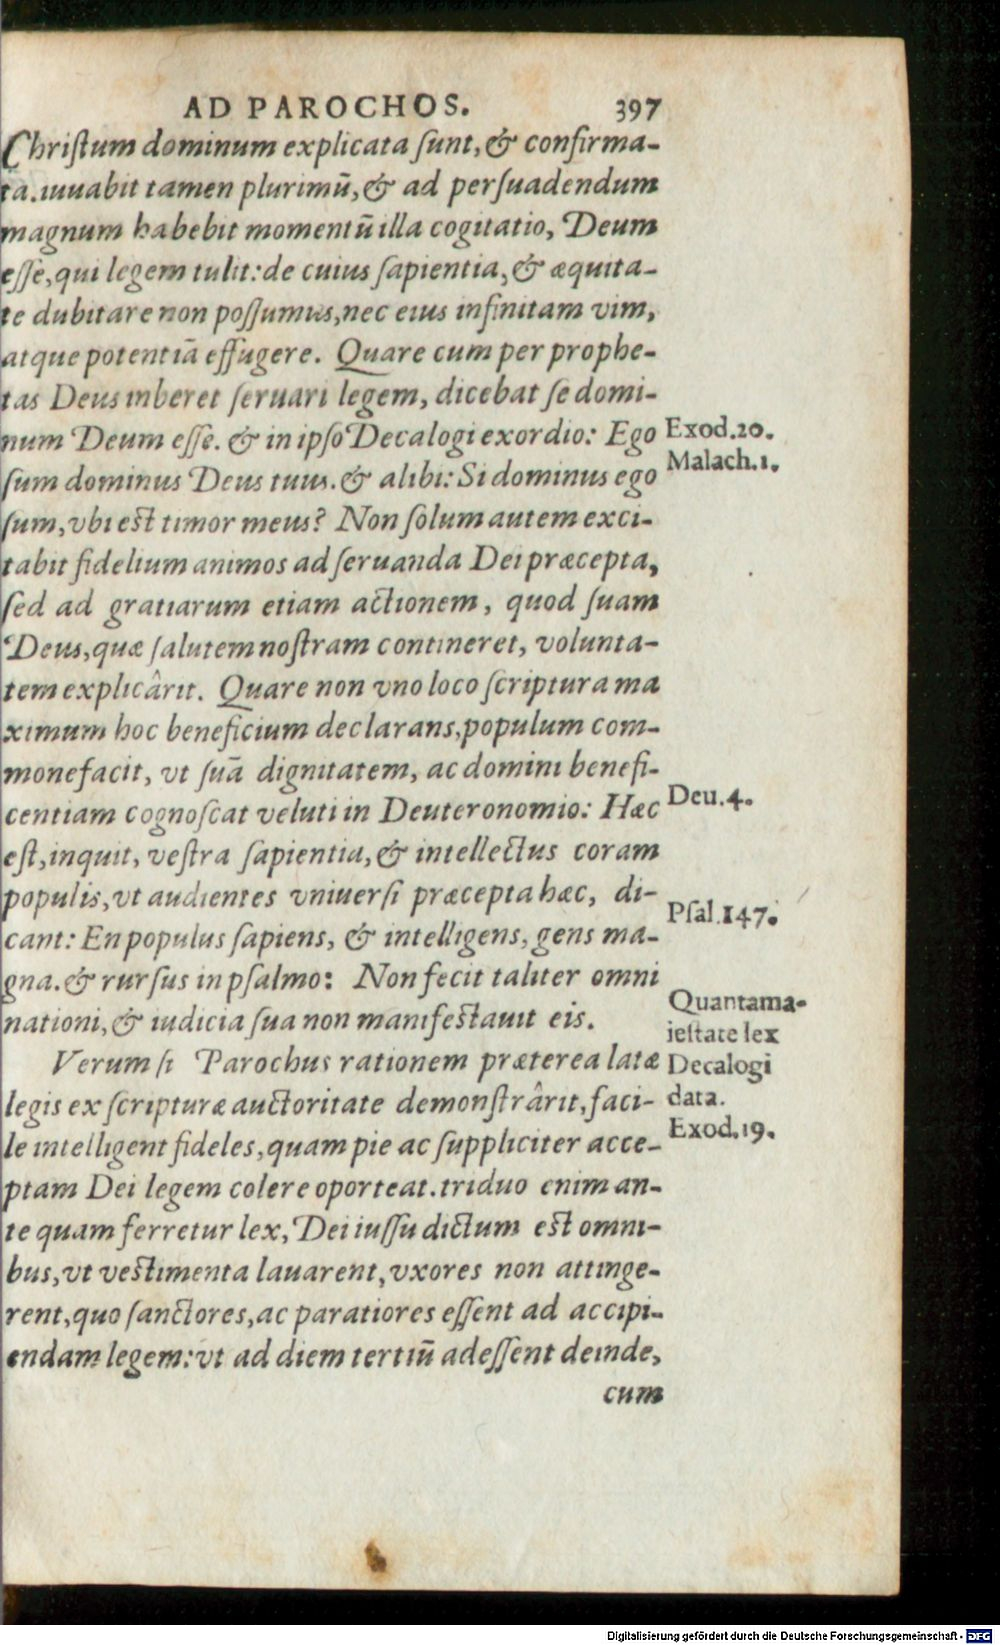 AD PAROCHOS. 397
Chriſtum dominum explicata ſunt, & confirma-
ta. iuuabit tamen plurimū, & ad perſuadendum
magnum habebit momentū illa cogitatio, Deum
eſſe, qui legem tulit: de cuius ſapientia, & æquita-
te dubitare non poſſumus, nec eius infinitam vim,
atque potentiā effugere. Quare cum per prophe-
tas Deus iuberet ſeruari legem, dicebat ſe domi-
num Deum eſſe. & in ipſo Decalogi exordio: Ego
Exod.20.
ſum dominus Deus tuus. & alibi: Si dominus ego
Malach.1.
ſum, vbi est timor meus? Non ſolum autem exci-
tabit fidelium animos ad ſeruanda Dei præcepta,
ſed ad gratiarum etiam actionem, quod ſuam
Deus, quæ ſalutem noſtram contineret, volunta-
tem explicârit. Quare non vno loco ſcriptura ma
ximum hoc beneficium declarans, populum com-
monefacit, vt ſuā dignitatem, ac domini benefi-
centiam cognoſcat veluti in Deuteronomio: Hæc
Deu.4.
eſt, inquit, veſtra ſapientia, & intellectus coram
populis, vt audientes vniuerſi præcepta hæc, di-
cant: En populus ſapiens, & intelligens, gens ma-
Pſal.147.
gna. & rurſus in pſalmo: Non fecit taliter omni
nationi, & iudicia ſua non manifestauit eis.
Quanta ma-
ieſtate lex
Decalogi
data.
Exod.19.
Verum ſi Parochus rationem præterea latæ
legis ex ſcripturæ auctoritate demonſtrârit, faci-
le intelligent fideles, quam pie ac ſuppliciter acce-
ptam Dei legem colere oporteat. triduo enim an-
te quam ferretur lex, Dei iuſſu dictum est omni-
bus, vt vestimenta lauarent, vxores non attinge-
rent, quo ſanctores, ac paratiores eſſent ad accipi-
endam legem: vt ad diem tertiū adeſſent deinde,
cum
Digitalisierung gefördert durch die Deutsche Forschungsgemeinschaft - DFG